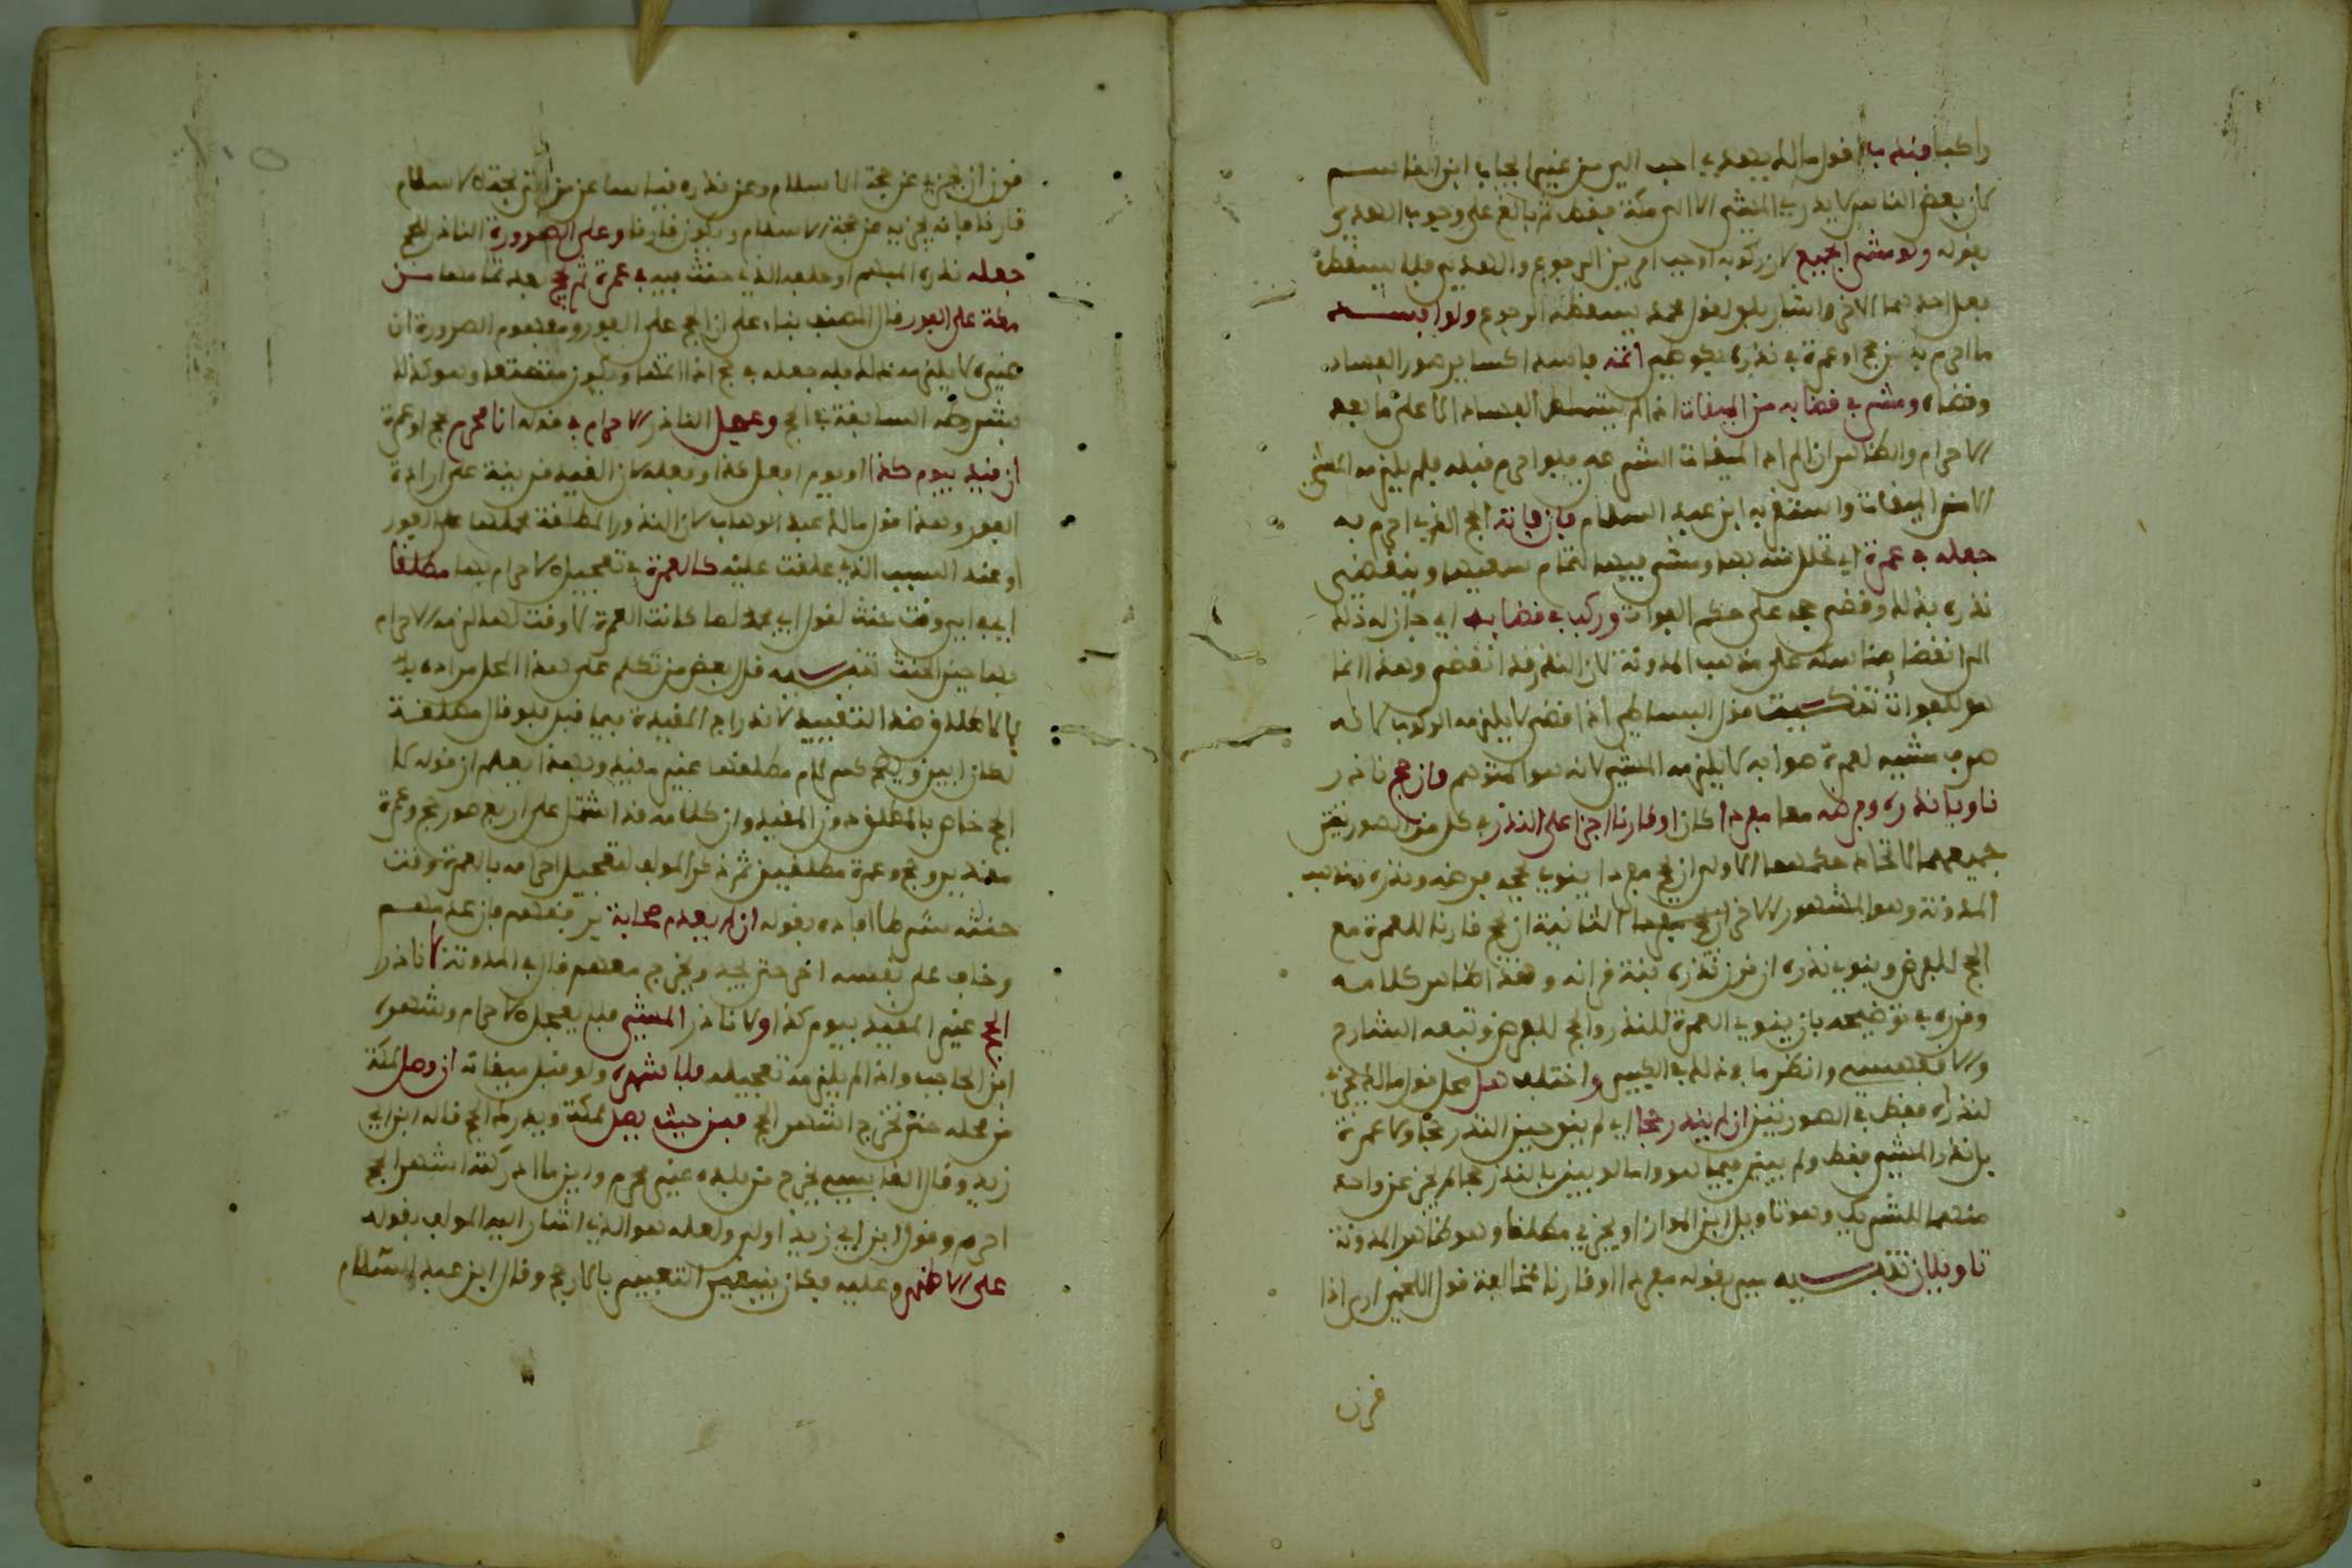 راكبا وندبا لقول مالك يهدي احب الي من غير ايجاب ابن القاسم
لان بعض الناس لا يدري المشي الا الى مكة فقط ثم بالغ على وجوب الهدي
بقوله ولو مشى الجميع لان ركوبه اوجب امرين الرجوع والهدي فلا يسقط
بعل احدهما الاخر واشار بلو لقول محمد يسقطه الرجوع ولو افسد
ما احرم به من حج او عمرة في نذره بكوطء اتمه فاسدا كساير صور الفساد
وقضاه ومشى في قضايه من الميقات اذ لم يتسلط الفساد الا على ما بعد
الاحرام والظاهر ان المراد الميقات الشرعي فلو احرم قبله فلم يلزمه المشي
الا من الميقات واستقربه ابن عبد السلام فان فاته الحج الذي احرم به
جعله في عمرة اي تحلل منه بها ومشى فيها لتمام سعيها وينقضي
نذره بذلك وقضى حجه على حكم الفوات وركب في قضايه اي جاز له ذلك
الى انقضا مناسكه على مذهب المدونة لان النذر قد انقضى وهذا انما
هو للفوات تنكيت قول البساطي اذا قضى لا يلزمه الركوب لانه
صرف مشيه لعمرة صوابه لا يلزمه المشي لانه هو المتوهم وان حج ناذر
ناويا نذره وفرضه معا مفردا كان او قارنا اجزا على النذر في كل من الصورتين
جميعهما لاتحاد حكمهما الاولى ان يحج مفردا ينوي بحجه فرضه ونذره ومذهب
المدونة وهو المشهور الاجزا الثانية ان يحج قارنا للعمرة مع
الحج للفرض وينوي نذره ان نوى نذره نية قرانه وهذا ظاهر كلامه
وقرره في توضيحه بان ينوي العمرة للنذر والحج للفرض وتبعه الشارح
والاقفهسي وانظر ما في ذلك في الكبير واختلف هل محل قول مالك يجزي
لنذره فقط في الصورتين ان لم ينذر حجا اي لم ينو حين النذر حجا ولا عمرة
بل نذر المشي فقط ولم يبين فيما هو واما لو بين بالنذر حجا لم يجز عن واحد
منهما للتشريك وهو تاويل ابن المواز او يجزي مطلقا وهو ظاهر المدونة
تاويلان تنبيه بين بقوله مفردا او قارنا مخالفة قول اللخمي ارى اذا
قرن
قرن ان يجزيه عن حجة الاسلام وعن نذره قياسا عن من اتى بحجة الاسلام
قارنا فانه يجزيه عن حجة الاسلام ويكون قارنا وعلى الصرورة الناذر للحج
جعله نذره المبهم او حلفه الذي حنث فيه في عمرة ثم يحج بعد تمامها من
مكة على الفور قال المصنف بناء على ان الحج على الفور ومفهوم الصرورة ان
غيره لا يلزمه ذلك فله جعله في حج اذا شا ويكون متمتعا وهو كذلك
بشروطه السابقة في الحج وعجل الناذر الاحرام في قوله انا محرم بحج او عمرة
ان قيد بيوم كذا او يوم افعل كذا وفعله لان القيد قرينة على ارادة
الفور وهذا قول مالك عبد الوهاب لان النذور المطلقة محلها على الفور
او عند السبب الذي علقت عليه كالعمرة في تعجيل الاحرام بها مطلقا
اي في اي وقت حنث لقول ابي محمد لما كانت العمرة لا وقت لها لزمه الاحرام
بها حين الحنث تنبيه قال بعض من تكلم على هذا المحل مراده
بالاطلاق ضد التقييد لاندراج المقيدة فيما قبل فلو قال مطلقة
لكان ابين ويصح كسر لام مطلقا غير مقيد وبهذا يعلم ان قوله لا
الحج خاص بالمطلق دون المقيد وان كلامه قد اشتمل على اربع صور حج وعمرة
مقيدين وحج وعمرة مطلقين ثم ذكر المولف لتعجيل احرامه بالعمرة وقت
حنثه شرطا افاده بقوله ان لم يعدم صحابة يرافقهم فان عدمهم
وخاف على نفسه اخر حتى يجد ويخرج معهم قال في المدونة لا ناذر
الحج غير المقيد بيوم كذا ولا ناذر المشي فلا يعجل الاحرام وشهره
ابن الحاجب واذا لم يلزمه تعجيله فلاشهره ولو قبل ميقاته ان وصل مكة
من محله حتى تخرج اشهر الحج فمن حيث يصل لمكة ويدرك الحج قاله ابن ابي
زيد وقال القابسي يخرج من بلده غير محرم واين ما ادركته اشهر الحج
احرم وقول ابن ابي زيد اولى ولعله هو الذي اشار اليه المولف بقوله
على الاظهر وعليه فكان ينبغي التعبير بالارجح وقال ابن عبد السلام